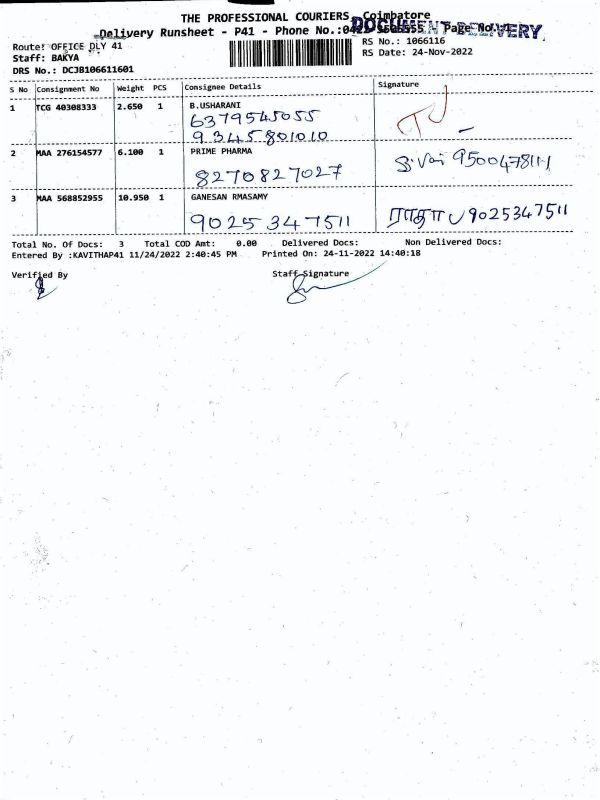 THE PROFESSIONAL COURIERS, Coimbatore
DOCUMENT DELIVERY
Delivery Runsheet - P41 - Phone No.:
Route: OFFICE DLY 41
RS No.: 1066116
Staff: BAKYA
RS Date: 24-Nov-2022
DRS No.: DCJB106611601
S No Consignment No Weight PCS Consignee Details Signature
1 TCG 40308333 2.650 1 B.USHARANI
6379545055
9345801010
2 MAA 276154577 6.100 1 PRIME PHARMA
8270827027
9500478111
3 MAA 568852955 10.950 1 GANESAN RMASAMY
9025347511
ராதா 9025347511
Total No. Of Docs: 3 Total COD Amt: 0.00 Delivered Docs: Non Delivered Docs:
Entered By :KAVITHAP41 11/24/2022 2:40:45 PM Printed On: 24-11-2022 14:40:18
Verified By Staff Signature